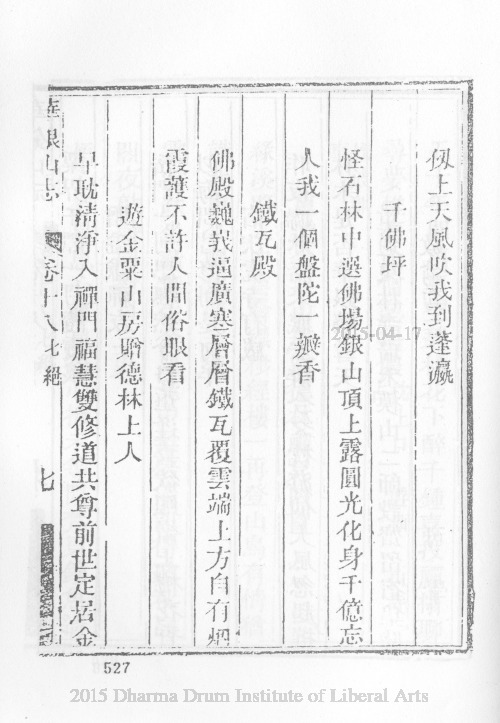 仭上天風吹我到蓬瀛
千佛坪
怪石林中選佛場銀山頂上露圓光化身千億忘
人我一個盤陀一瓣香
鐵瓦殿
佛殿巍峩逼廣寒層層鐵瓦覆雲端上方自有烟
霞護不許人間俗眼看
遊金粟山房贈德林上人
早耽清淨入禪門福慧雙修道共尊前世定居金
華銀山志 卷十八 七絕 七
2015-04-17
527
2015 Dharma Drum Institute of Liberal Arts